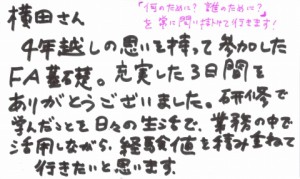 横田さん
「何のために？誰のために？」
を常に問い掛けて行きます！
4年越しの思いを持って参加した
FA基礎。充実した3日間を
ありがとうございました。研修で
学んだことを日々の生活で、業務の中で
活用しながら、経験値を積み重ねて
行きたいと思います。